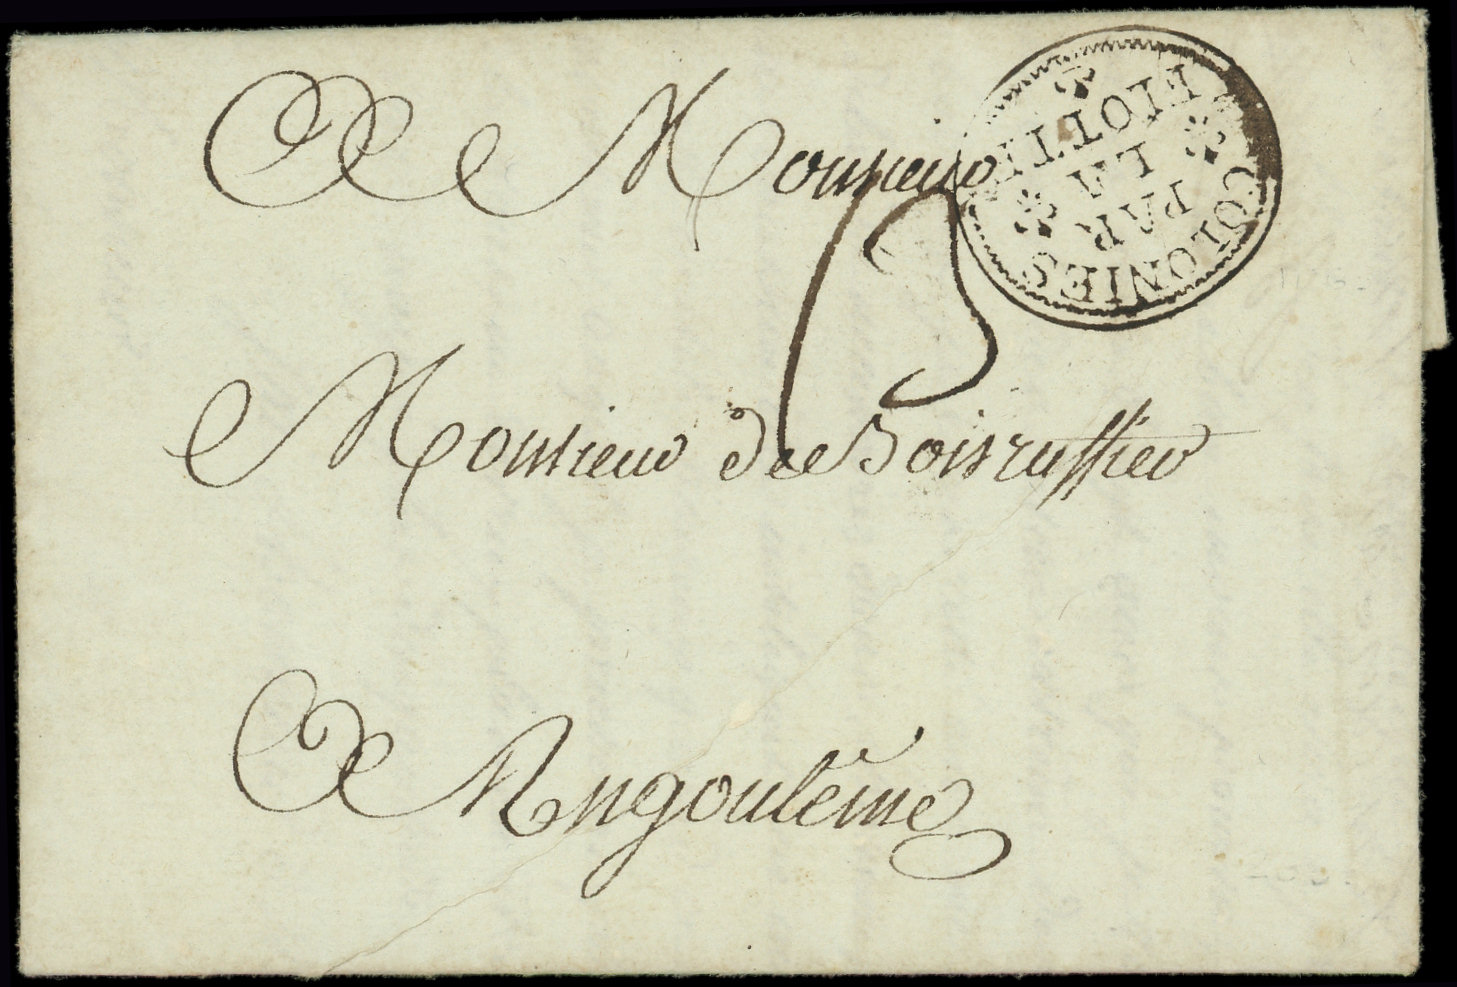 A Monsieur
COLONIES
PAR
LA
FLOTTE
13
Monsieur de Boisruffier
A Angoulême